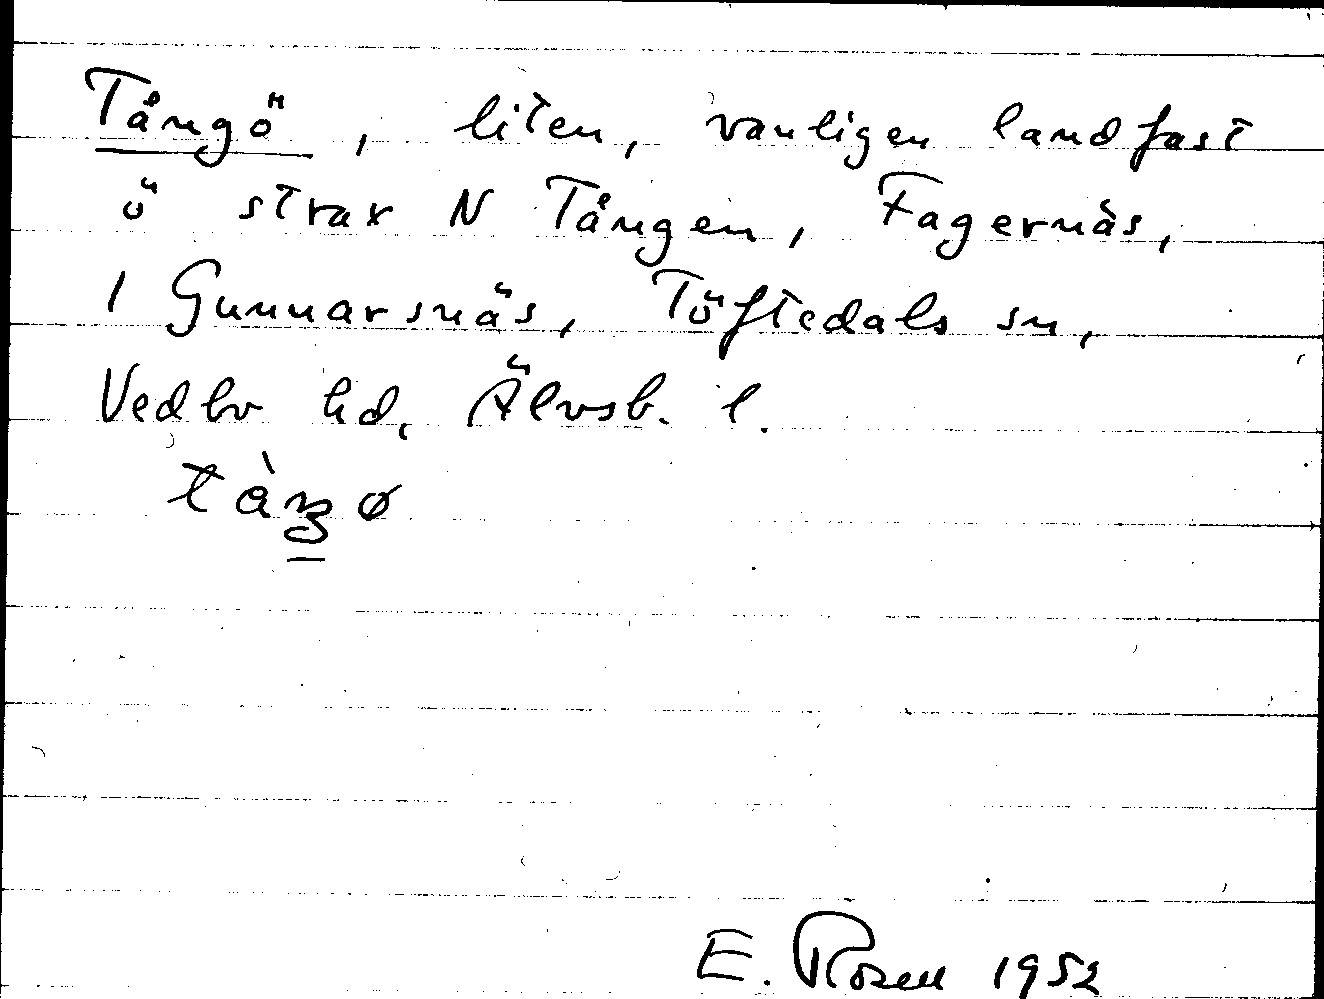 Tångö, liten, vanligen landfast
ö strax N Tången, Fagernäs,
1 Gunnarsnäs, Töftedals sn,
Vedbo hd, Älvsb. l.
E. Rosell 1952